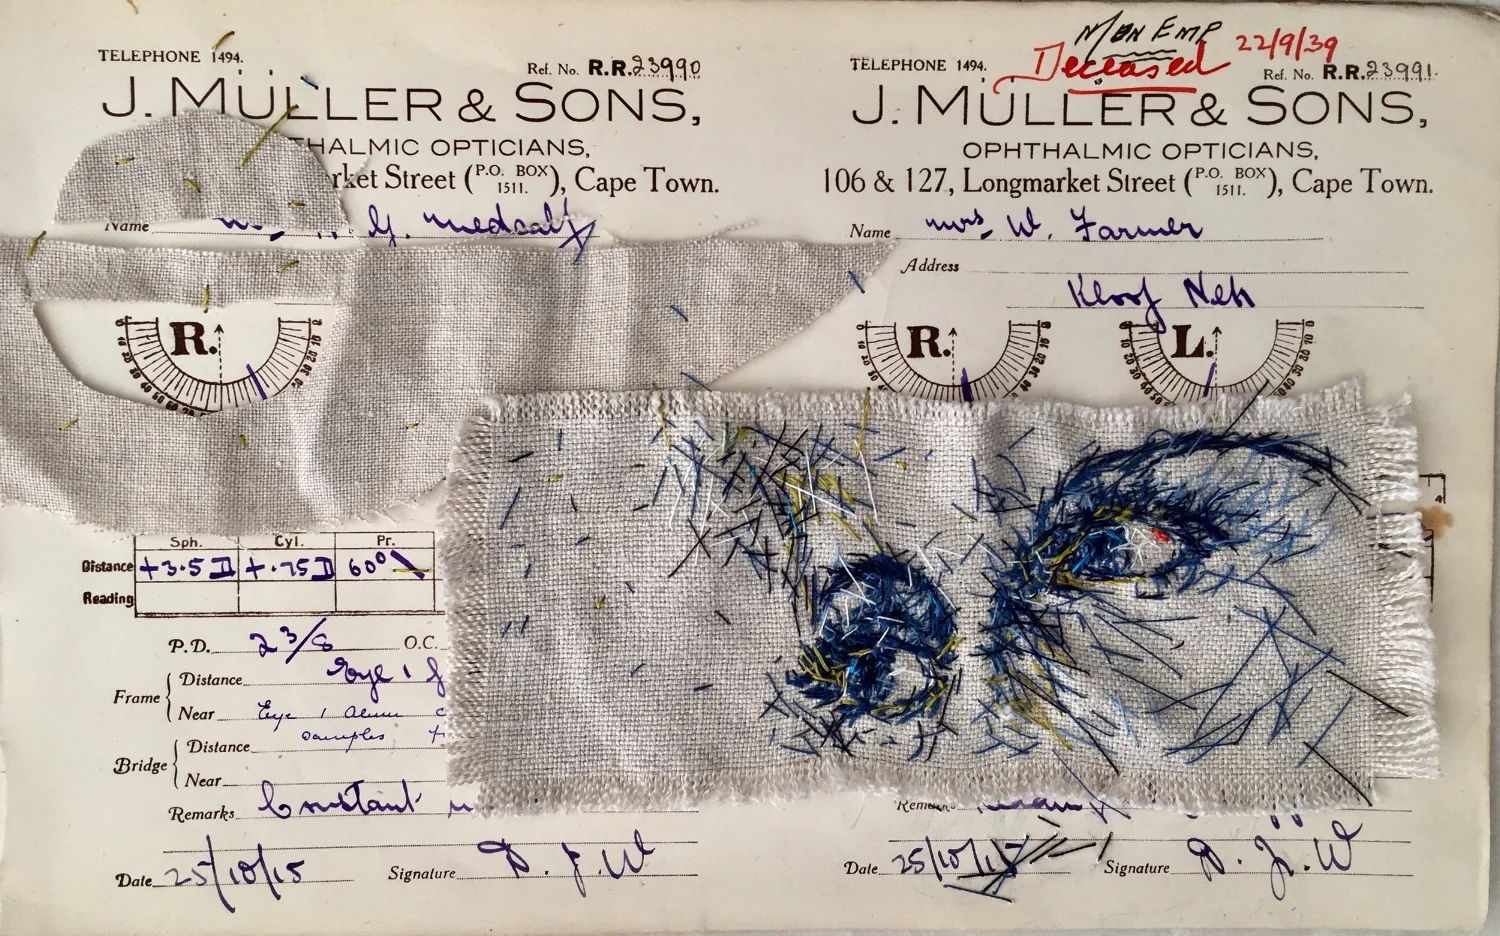 TELEPHONE 1494.
Ref. No. R.R.23990
J. MÜLLER & SONS,
THALMIC OPTICIANS,
rket Street (P.O. BOX 1511.), Cape Town.
Name G. Medcalf
R.
Sph. Cyl. Pr.
Distance +3.5D +.75D 60°
Reading
P.D. 2 3/8 O.C.
Frame
Distance
Near Eye 1
samples
Bridge
Distance
Near
Remarks Constant
Date 25/10/15 Signature D. J. W
Non Emp
Deceased 22/9/39
TELEPHONE 1494.
Ref. No. R.R.23991.
J. MÜLLER & SONS,
OPHTHALMIC OPTICIANS,
106 & 127, Longmarket Street (P.O. BOX 1511.), Cape Town.
Name Mrs W. Farmer
Address
Kloof Nek
R. L.
4
Remarks
Date 25/10/1 Signature D. J. W